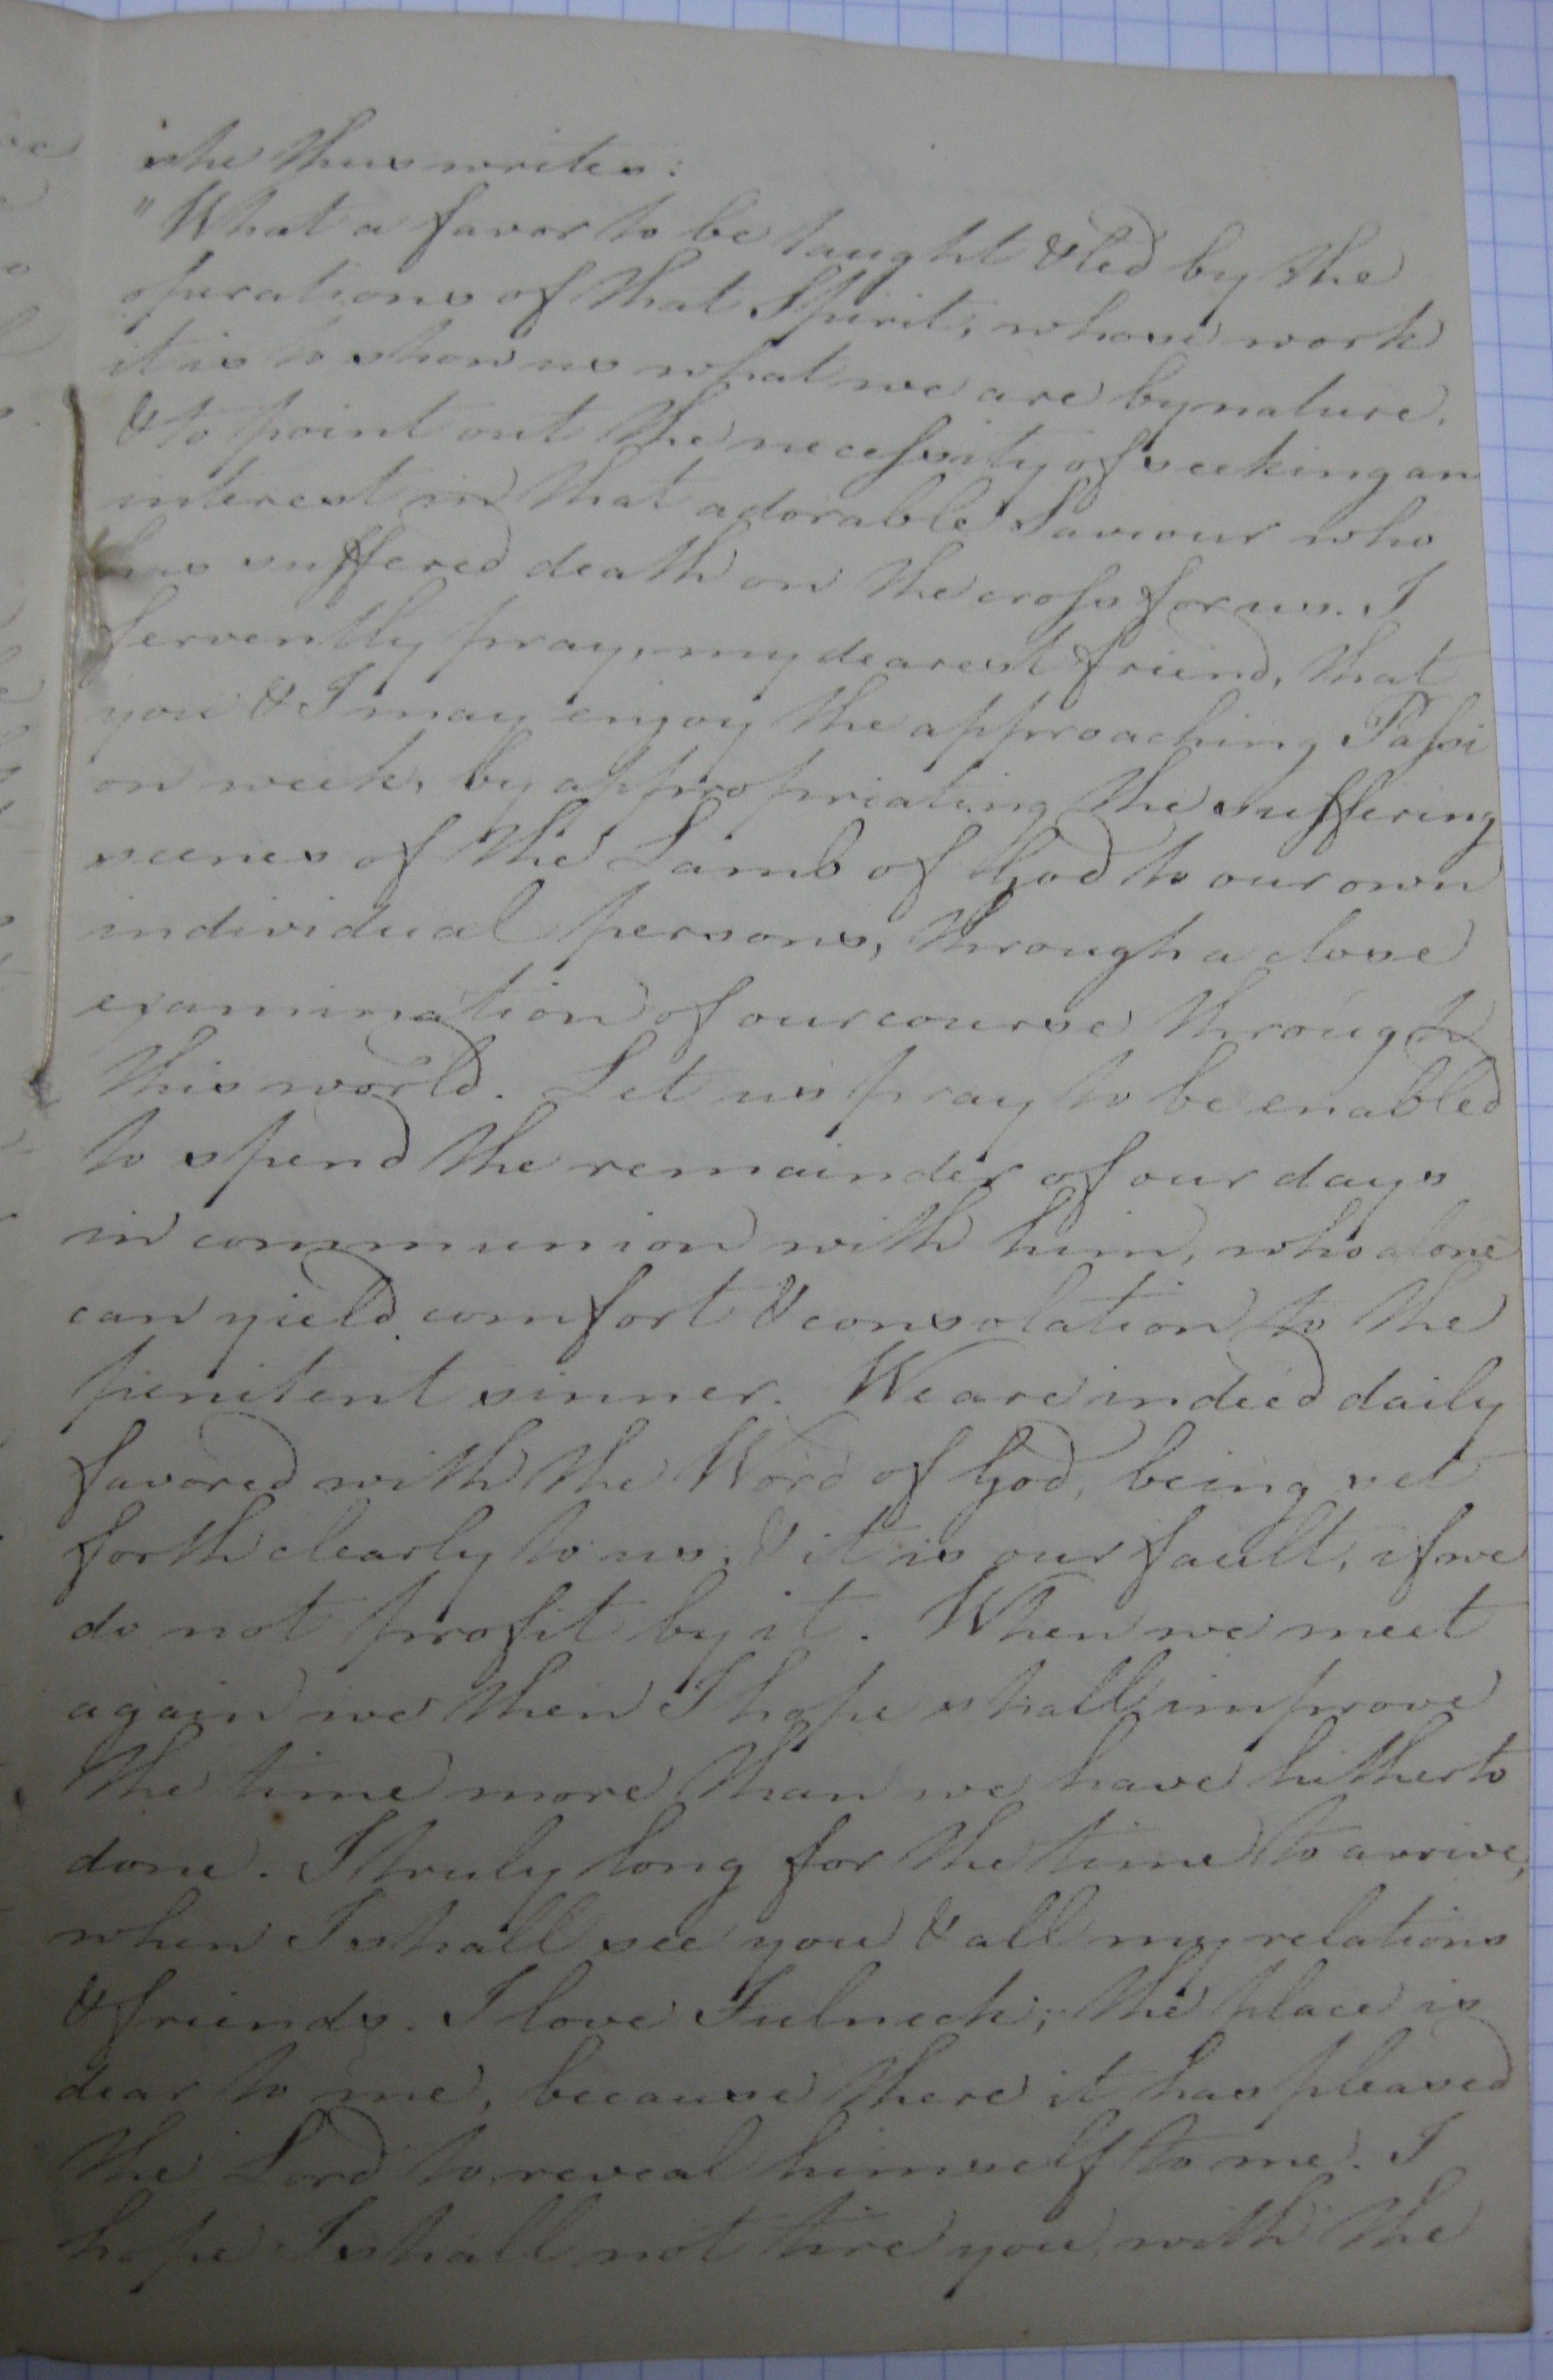 she thus writes:
"What a favor to be taught & led by the
operations of that Spirit, whose work
it is to show us what we are by nature,
& to point out the necessity of seeking an
interest in that adorable Saviour who
has suffered death on the cross for us. I
fervently pray, my dearest friend, that
you & I may enjoy the approaching Passi
on week, by appropriating the suffering
scenes of the Lamb of God to our own
individual persons, through a close
examination of our course through
this world. Let us pray to be enabled
to spend the remainder of our days
in communion with him, who alone
can yield comfort & consolation to the
penitent sinner. We are indeed daily
favored with the Word of God, being set
forth clearly to us, & it is our fault, if we
do not profit by it. When we meet
again we then I hope shall improve
the time more than we have hitherto
done. I truly long for the time to arrive,
when I shall see you & all my relations
& friends. I love Fulneck; the place is
dear to me, because there it has pleased
the Lord to reveal himself to me. I
hope I shall not tire you with the